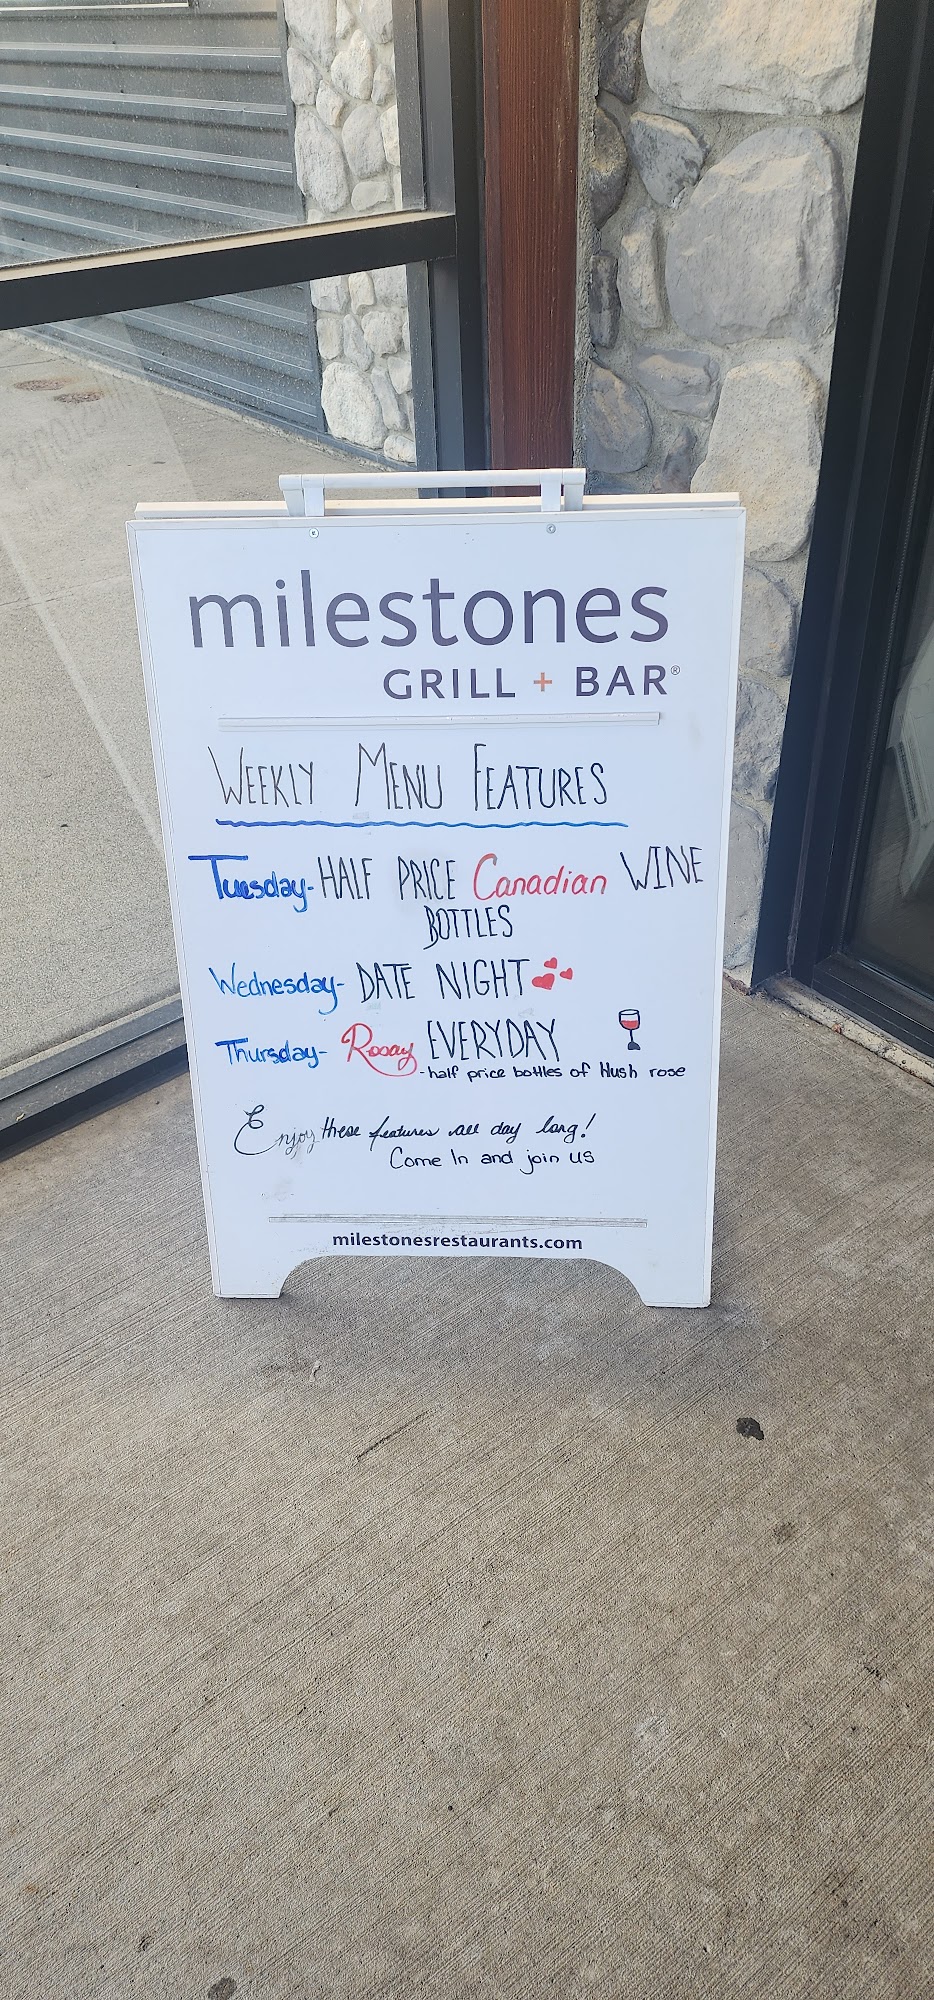 milestones
GRILL + BAR®
WEEKLY MENU FEATURES
Tuesday- HALF PRICE Canadian WINE
BOTTLES
Wednesday- DATE NIGHT
Thursday- Rosay EVERYDAY
-half price bottles of Hush rose
Enjoy these features all day long!
Come In and join us
milestonesrestaurants.com